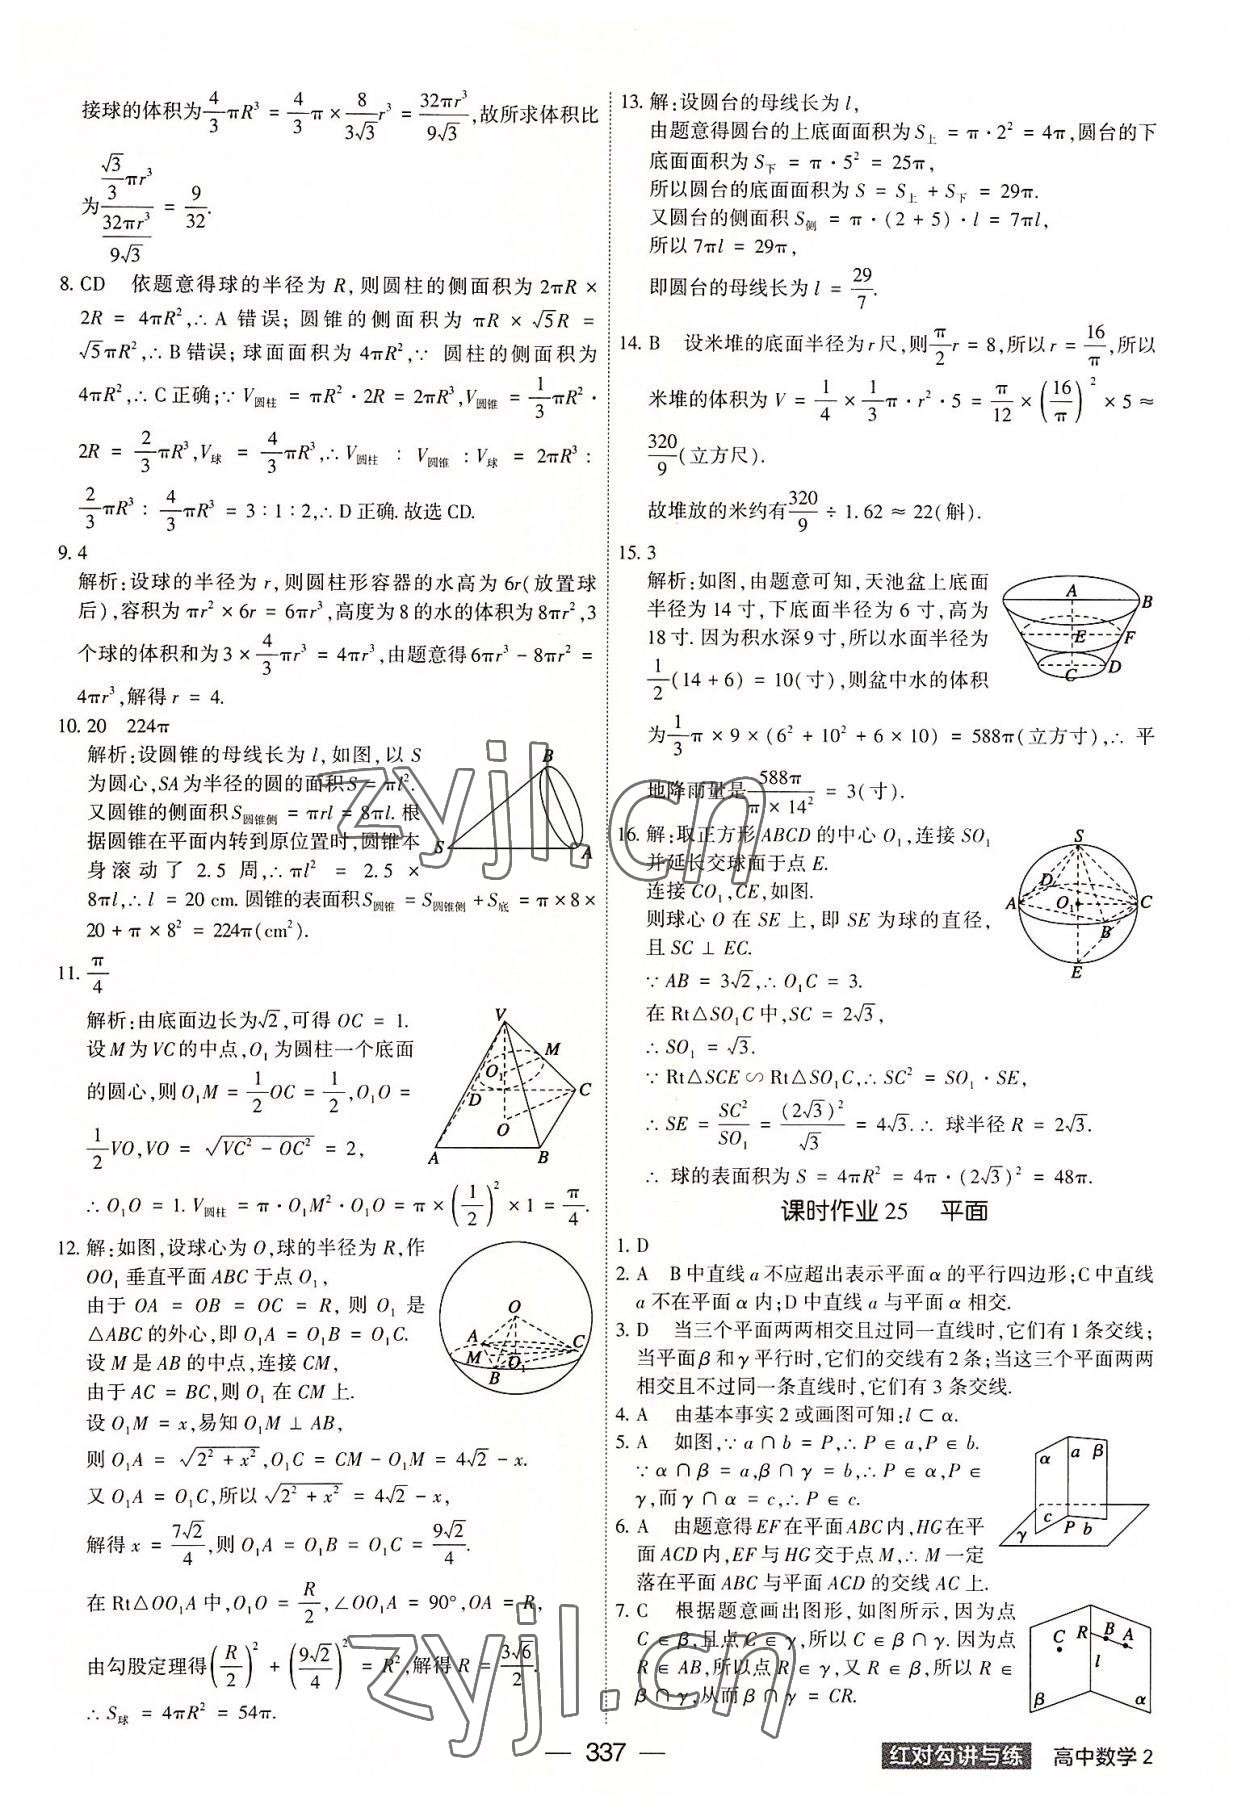 接球的体积为4/3πR³ = 4/3π × 8/(3√3)r³ = 32πr³/(9√3),故所求体积比
为(√3/3πr³)/(32πr³/(9√3)) = 9/32.
8. CD 依题意得球的半径为 R,则圆柱的侧面积为 2πR ×
2R = 4πR²,∴ A 错误; 圆锥的侧面积为 πR × √5R =
√5πR²,∴ B 错误;球面面积为 4πR²,∵ 圆柱的侧面积为
4πR²,∴ C 正确;∵ V圆柱 = πR²·2R = 2πR³,V圆锥 = 1/3πR²·
2R = 2/3πR³,V球 = 4/3πR³,∴ V圆柱 : V圆锥 : V球 = 2πR³ :
2/3πR³ : 4/3πR³ = 3 : 1 : 2,∴ D 正确. 故选 CD.
9. 4
解析:设球的半径为 r,则圆柱形容器的水高为 6r(放置球
后),容积为 πr² × 6r = 6πr³,高度为 8 的水的体积为 8πr²,3
个球的体积和为 3 × 4/3πr³ = 4πr³,由题意得 6πr³ − 8πr² =
4πr³,解得 r = 4.
10. 20 224π
解析:设圆锥的母线长为 l,如图,以 S
为圆心,SA 为半径的圆的面积 S = πl².
又圆锥的侧面积 S圆锥侧 = πrl = 8πl. 根
据圆锥在平面内转到原位置时,圆锥本
身滚动了 2.5 周,∴ πl² = 2.5 ×
8πl,∴ l = 20 cm. 圆锥的表面积 S圆锥 = S圆锥侧 + S底 = π × 8 ×
20 + π × 8² = 224π(cm²).
B
S
A
11. π/4
解析:由底面边长为√2,可得 OC = 1.
设 M 为 VC 的中点,O₁ 为圆柱一个底面
的圆心,则 O₁M = 1/2OC = 1/2,O₁O =
1/2VO,VO = √(VC² − OC²) = 2,
∴ O₁O = 1. V圆柱 = π·O₁M²·O₁O = π × (1/2)² × 1 = π/4.
V
M
O₁
D
C
O
A
B
12. 解:如图,设球心为 O,球的半径为 R,作
OO₁ 垂直平面 ABC 于点 O₁,
由于 OA = OB = OC = R,则 O₁ 是
△ABC 的外心,即 O₁A = O₁B = O₁C.
设 M 是 AB 的中点,连接 CM,
由于 AC = BC,则 O₁ 在 CM 上.
设 O₁M = x,易知 O₁M ⊥ AB,
则 O₁A = √(2² + x²),O₁C = CM − O₁M = 4√2 − x.
又 O₁A = O₁C,所以√(2² + x²) = 4√2 − x,
解得 x = 7√2/4,则 O₁A = O₁B = O₁C = 9√2/4.
在 Rt△OO₁A 中,O₁O = R/2,∠OO₁A = 90°,OA = R,
由勾股定理得(R/2)² + (9√2/4)² = R²,解得 R = 3√6/2.
∴ S球 = 4πR² = 54π.
O
A
C
M
B
O₁
13. 解:设圆台的母线长为 l,
由题意得圆台的上底面面积为 S上 = π·2² = 4π,圆台的下
底面面积为 S下 = π·5² = 25π,
所以圆台的底面面积为 S = S上 + S下 = 29π.
又圆台的侧面积 S侧 = π·(2 + 5)·l = 7πl,
所以 7πl = 29π,
即圆台的母线长为 l = 29/7.
14. B 设米堆的底面半径为 r 尺,则π/2r = 8,所以 r = 16/π,所以
米堆的体积为 V = 1/4 × 1/3π·r²·5 = π/12 × (16/π)² × 5 ≈
320/9(立方尺).
故堆放的米约有320/9 ÷ 1.62 ≈ 22(斛).
15. 3
解析:如图,由题意可知,天池盆上底面
半径为 14 寸,下底面半径为 6 寸,高为
18 寸. 因为积水深 9 寸,所以水面半径为
1/2(14 + 6) = 10(寸),则盆中水的体积
为1/3π × 9 × (6² + 10² + 6 × 10) = 588π(立方寸),∴ 平
地降雨量是588π/(π × 14²) = 3(寸).
A
B
E
F
C
D
16. 解:取正方形 ABCD 的中心 O₁,连接 SO₁
并延长交球面于点 E.
连接 CO₁,CE,如图.
则球心 O 在 SE 上,即 SE 为球的直径,
且 SC ⊥ EC.
∵ AB = 3√2,∴ O₁C = 3.
在 Rt△SO₁C 中,SC = 2√3,
∴ SO₁ = √3.
∵ Rt△SCE ∽ Rt△SO₁C,∴ SC² = SO₁·SE,
∴ SE = SC²/SO₁ = (2√3)²/√3 = 4√3. ∴ 球半径 R = 2√3.
∴ 球的表面积为 S = 4πR² = 4π·(2√3)² = 48π.
S
D
A
O₁
C
B
E
课时作业 25 平面
1. D
2. A B 中直线 a 不应超出表示平面 α 的平行四边形;C 中直线
a 不在平面 α 内;D 中直线 a 与平面 α 相交.
3. D 当三个平面两两相交且过同一直线时,它们有 1 条交线;
当平面 β 和 γ 平行时,它们的交线有 2 条;当这三个平面两两
相交且不过同一条直线时,它们有 3 条交线.
4. A 由基本事实 2 或画图可知:l ⊂ α.
5. A 如图,∵ a ∩ b = P,∴ P ∈ a,P ∈ b.
∵ α ∩ β = a,β ∩ γ = b,∴ P ∈ α,P ∈
γ,而 γ ∩ α = c,∴ P ∈ c.
α
a
β
c
P
b
γ
6. A 由题意得 EF 在平面 ABC 内,HG 在平
面 ACD 内,EF 与 HG 交于点 M,∴ M 一定
落在平面 ABC 与平面 ACD 的交线 AC 上.
7. C 根据题意画出图形,如图所示,因为点
C ∈ β,且点 C ∈ γ,所以 C ∈ β ∩ γ. 因为点
R ∈ AB,所以点 R ∈ γ,又 R ∈ β,所以 R ∈
β ∩ γ,从而 β ∩ γ = CR.
C
R
B
A
l
β
α
zyjl.cn
zyjl.cn
— 337 —
红对勾讲与练 高中数学 2